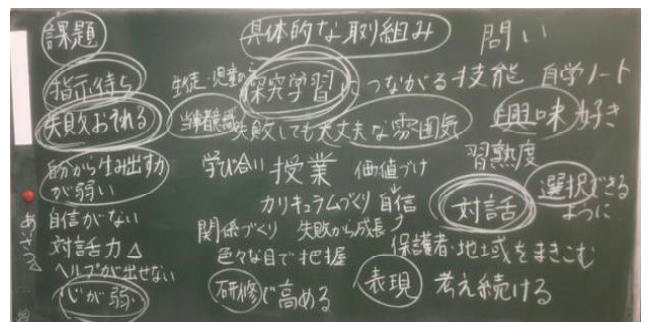 課題
指示待ち
失敗おそれる
自分から生み出す力
が弱い
自信がない
対話力△
ヘルプが出せない
心が弱い
あいさつ
具体的な取り組み
問い
生徒・児童の探究学習につながる技能
自学ノート
当事者意識
失敗しても大丈夫な雰囲気
興味
好き
学び合い
授業
価値づけ
習熟度
カリキュラムづくり
自信
対話
選択できる
ように
関係づくり
失敗から成長
色々な目で把握
保護者・地域をまきこむ
研修で高める
表現
考え続ける